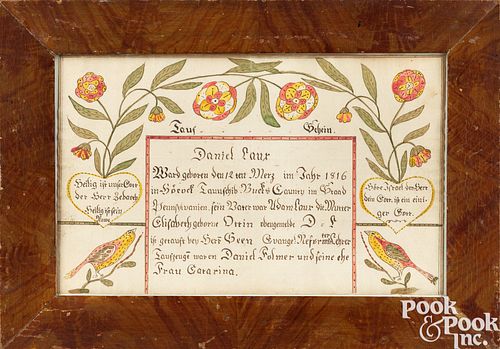 Taufschein.
Daniel Laux
Ward geboren den 12ten Merz im Jahr 1816
in Taunschib Bucks Caunty im Staad
Pennsivanien, sein Vater war Adam Laux die Mutter
Elisabeth geborne obengemelte D=L
ist getauft bey Herrn Evangel: Reform
Taufzeugen waren Daniel Folmer und seine ehe
Frau Catarina.
Heilig ist unser Gott
der Herr Zebaoth
Heilig ist sein
Name
Höre Israel der Herr
dein Gott ist ein eini-
ger Gott.
POOK
& POOK
Inc.